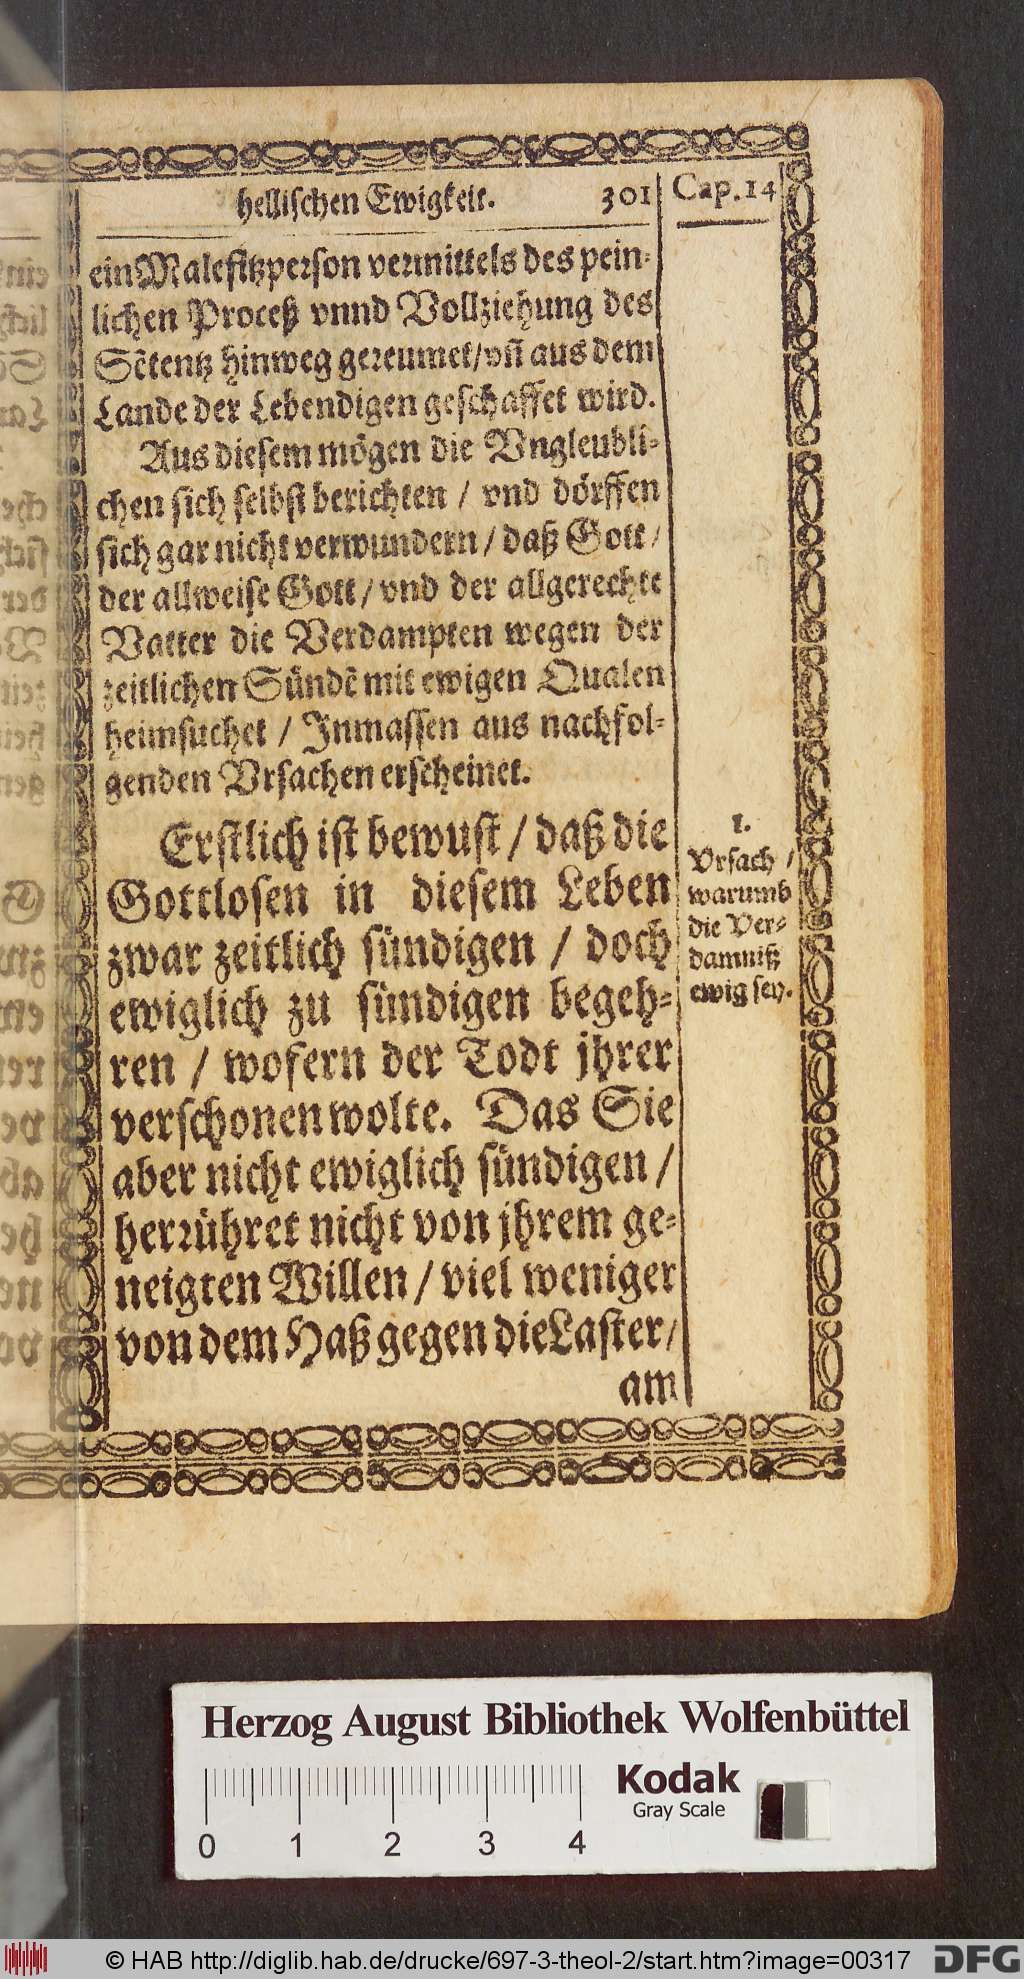 hellischen Ewigkeit. 301 Cap. 14
ein Malefitzperson vermittels des pein-
lichen Proceß vnnd Vollziehung des
Sẽtentz hinweg gereumet/ vñ aus dem
Lande der Lebendigen geschaffet wird.
Aus diesem mögen die Vngleubli-
chen sich selbst berichten / vnd dörffen
sich gar nicht verwundern / daß Gott /
der allweise Gott / vnd der allgerechte
Vatter die Verdampten wegen der
zeitlichen Sündẽ mit ewigen Qualen
heimsuchet / Inmassen aus nachfol-
genden Vrsachen erscheinet.
Erstlich ist bewust / daß die
Gottlosen in diesem Leben
zwar zeitlich sündigen / doch
ewiglich zu sündigen begeh-
ren / wofern der Todt jhrer
verschonen wolte. Das Sie
aber nicht ewiglich sündigen /
herrühret nicht von jhrem ge-
neigten Willen / viel weniger
von dem Haß gegen die Laster /
am
1.
Vrsach /
warumb
die Ver-
damniß
ewig sey.
Herzog August Bibliothek Wolfenbüttel
Kodak
Gray Scale
0 1 2 3 4
© HAB http://diglib.hab.de/drucke/697-3-theol-2/start.htm?image=00317
DFG